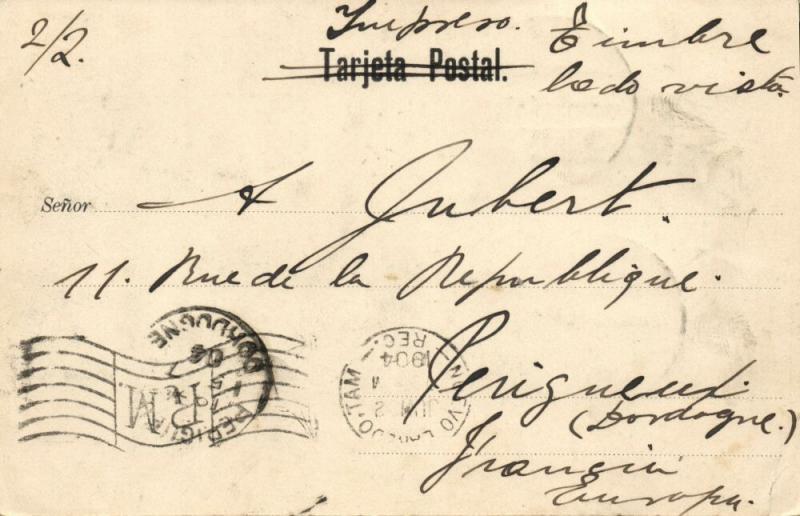 2/2.
Impreso. Timbre
Tarjeta Postal. lado vista.
Señor A Jubert.
11. Rue de la Republique.
Perigueux.
(Dordogne.)
Francia
Europa.
PERIGUEUX
DORDOGNE
04
NUEVO LAREDO, TAM.
REC.
1904
JUN 2